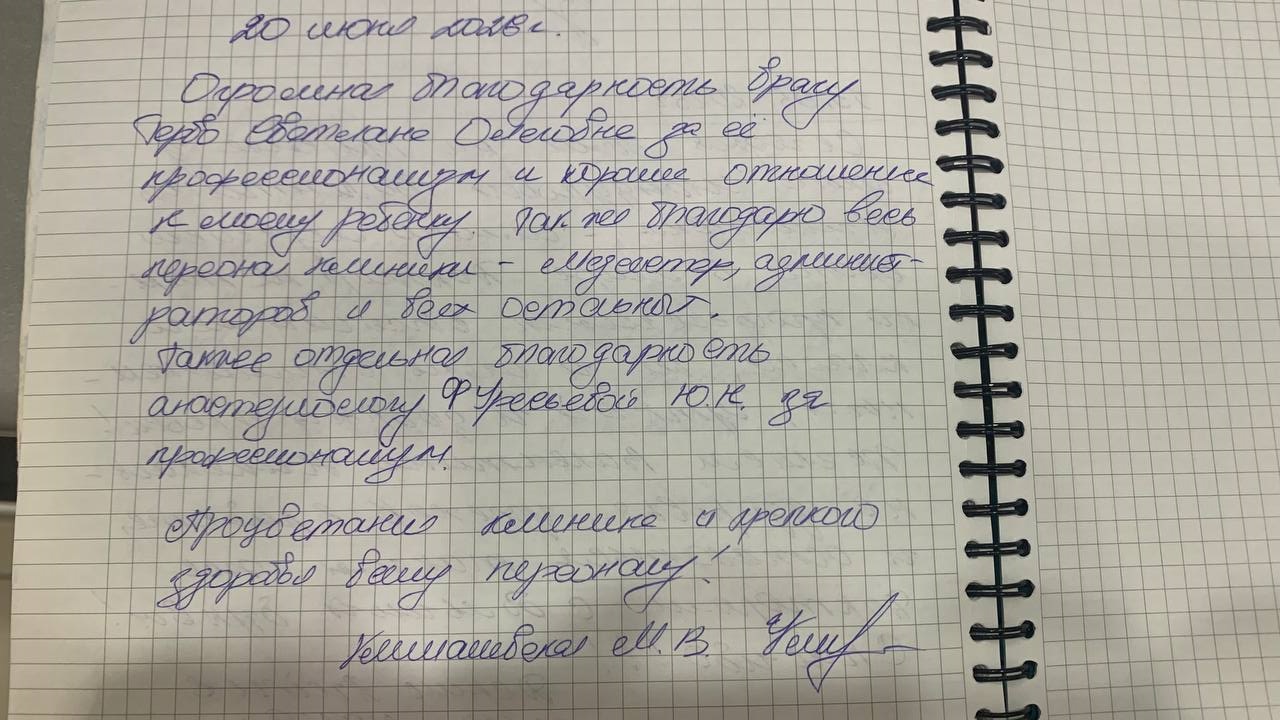 20 июня 2026 г.
Огромная благодарность врачу
Гербо Светлане Олеговне за её
профессионализм и хорошее отношение
к моему ребёнку. Так же благодарю весь
персонал клиники - медсестер, админист-
раторов и всех остальных.
Также отдельная благодарность
анастезиологу Ю.Н. за
профессионализм.
Процветания клинике и крепкого
здоровья всему персоналу!
М.В.